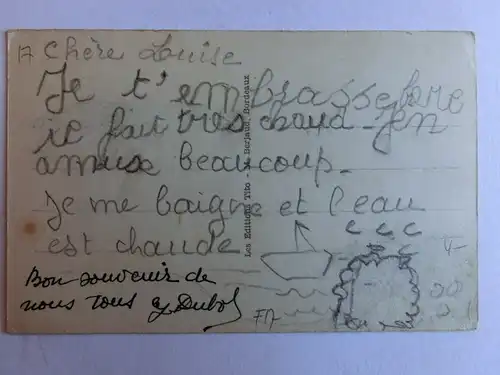 17 Chère Louise
Je t'embrasse
ic fait très chaud
amuse beaucoup.
Je me baigne et l'eau
est chaude
Bon souvenir de
nous tous
Les Editions Tito - Bordeaux